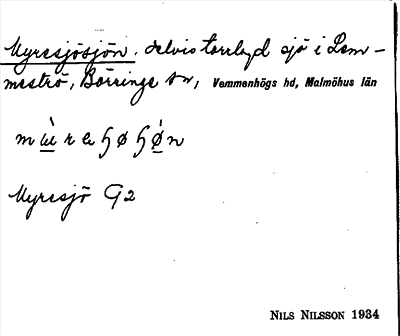 Myresjösjön. delvis torrlagd sjö i Lem-
meströ, Börringe sn, Vemmenhögs hd, Malmöhus län
Myresjö G2
NILS NILSSON 1934